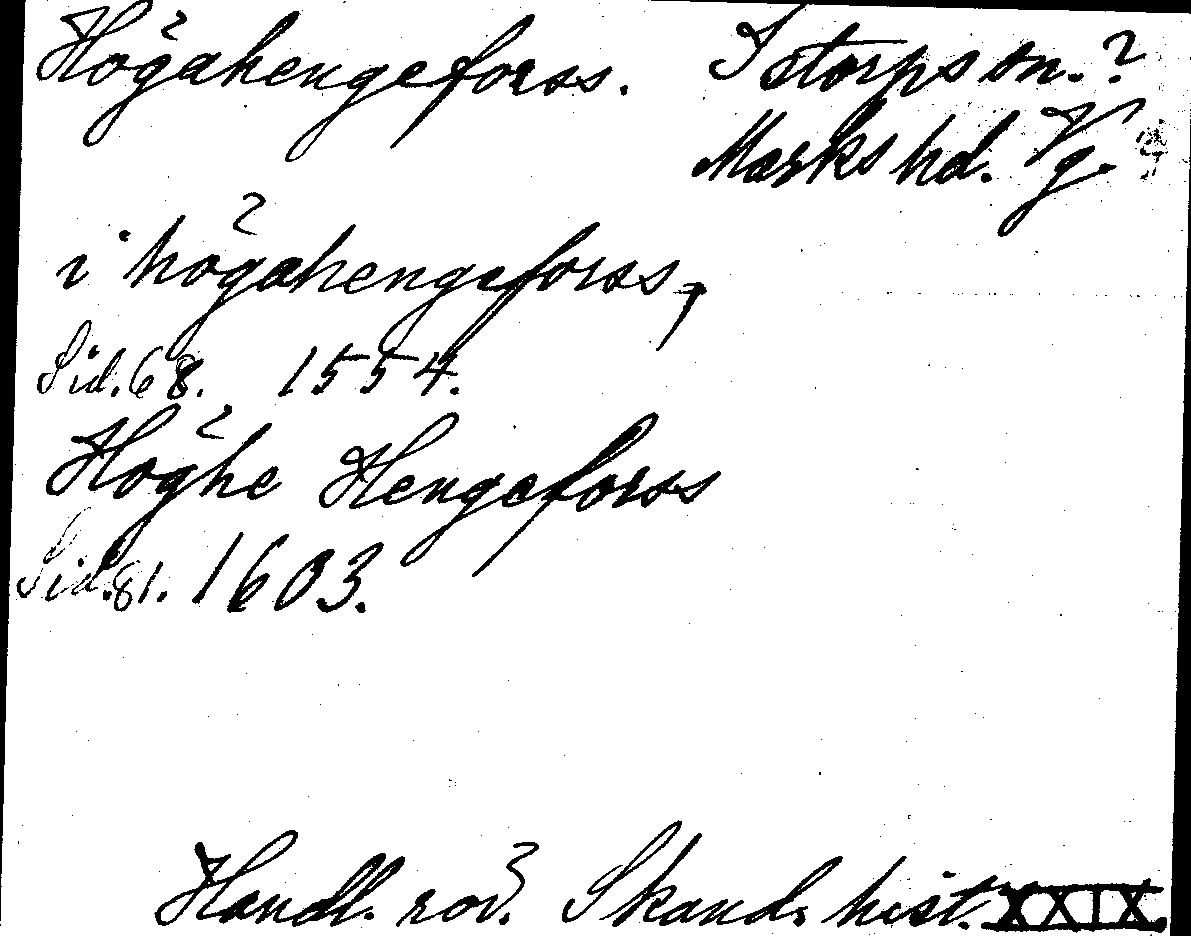 Högahengeforss. Istorps sn.?
Marks hd. Vg.
i högahengeforss,
Sid. 68. 1554.
Höghe Hengeforss
Sid. 81. 1603.
Handl. rör. Skand. hist. XXIX.